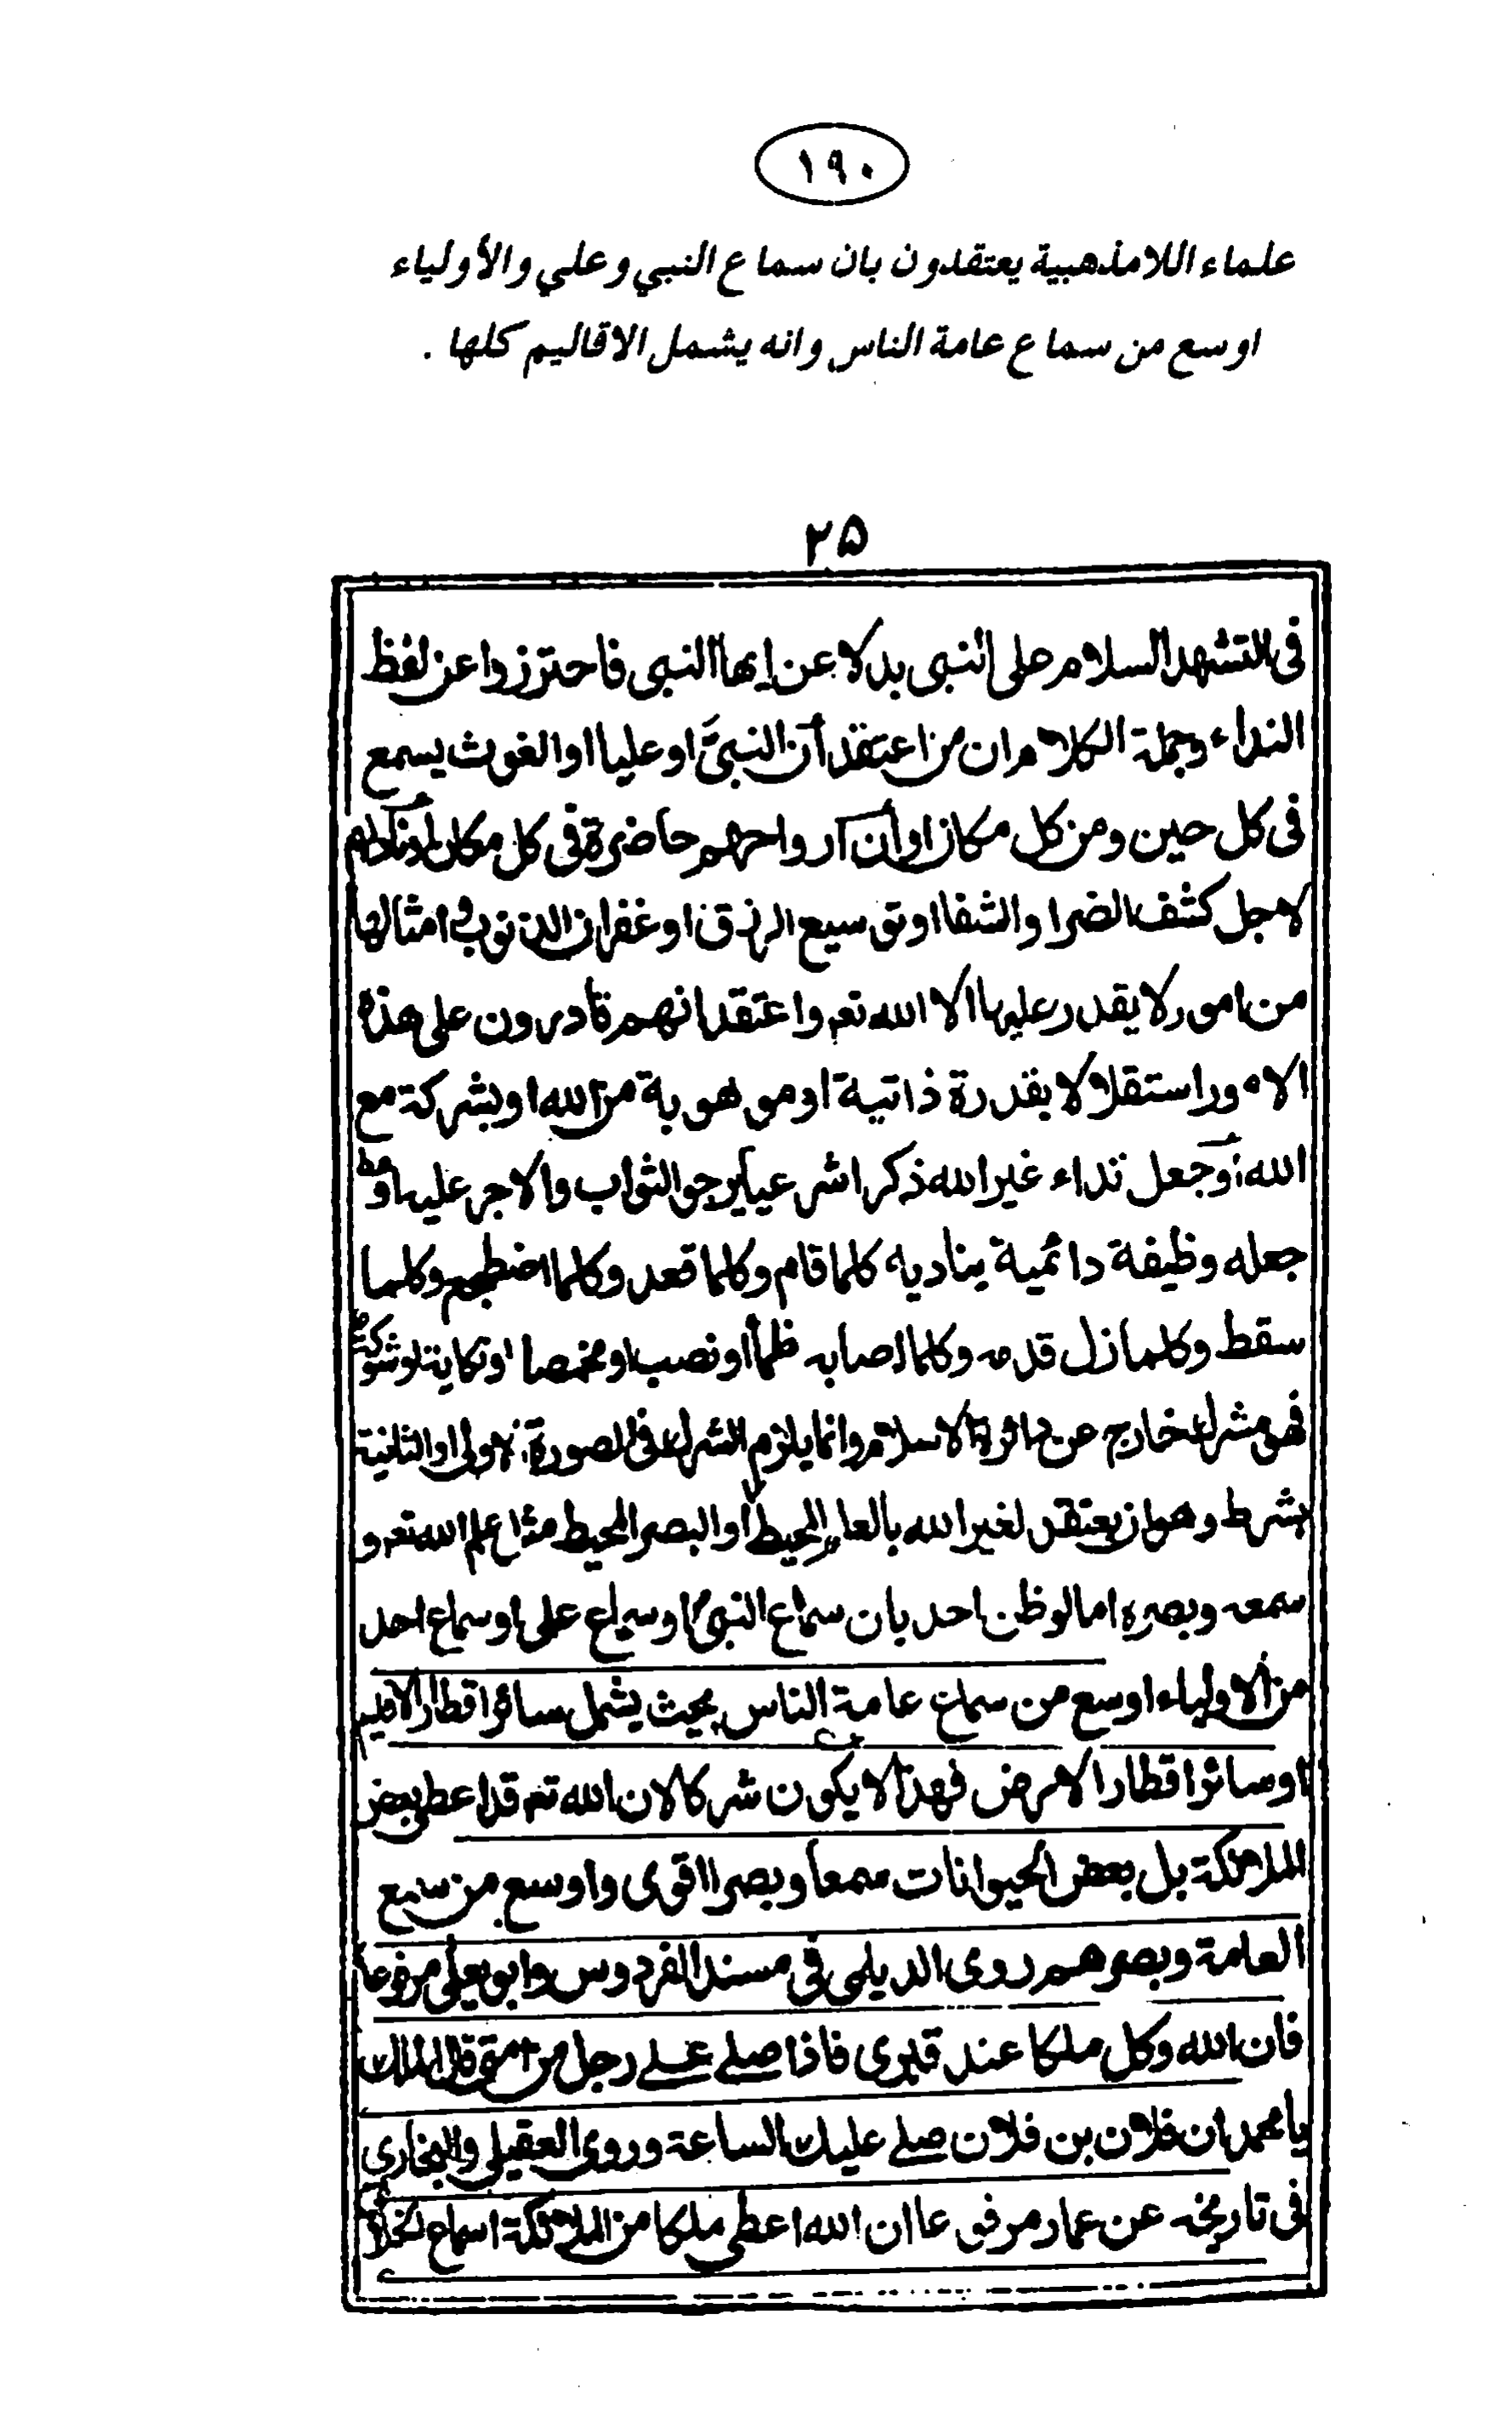 ١٩٠
علماء اللامذهبية يعتقدون بان سماع النبي وعلي والأولياء
اوسع من سماع عامة الناس وانه يشمل الاقاليم كلها .
٢۵
فى التشهد السلام على النبى بدلا عن ايها النبى فاحترزوا عن لفظ
النداء وجملة الكلام ان من اعتقد أن النبىَّ او عليا او الغوث يسمع
فى كل حين ومن كل مكان او أن ارواحهم حاضرة فى كل مكان
لاجل كشف الضر او الشفا او توسيع الرزق او غفران الذنوب و امثالها
من امور لا يقدر عليها الا الله تعہ واعتقد انهم قادرون على هذه
الامور استقلالا بقدرة ذاتية او موهوبة من الله او بشركة مع
الله وجعل نداء غير الله ذكرا شرعيا يرجو الثواب والاجر عليه او
جعله وظيفة دائمية يناديه كلما قام وكلما قعد وكلما اضطجع وكلما
سقط وكلما زل قدمه وكلما اصابه ظمأ او نصب او مخمصا او نكاية او شوكة
فهو مشرك خارج عن دائرة الاسلام وانما يلزم الشرك فى الصورة الاولى او الثانية
بشرط وهو ان يعتقد لغير الله بالعلم المحيط أو البصر المحيط مثل علم الله تعہ و
سمعه وبصره اما لو ظن احد بان سماع النبىؐ او سماع على او سماع احد
من الاولياء اوسع من سماع عامة الناس بحيث يشمل سائر اقطار الاقليم
او سائر اقطار الارض فهذا لا يكون شركا لان الله تعہ قد اعطى بعض
الملائكة بل بعض الحيوانات سمعا وبصرا اقوى واوسع من سمع
العامة وبصرهم روى الديلمى فى مسند الفردوس وابو يعلى مرفوعا
فان الله وكل ملكا عند قبرى فاذا صلے علے رجل من امتى قال الملك
يا محمد ان فلان بن فلان صلے عليك الساعة وروى العقيلى والبخارى
فى تاريخه عن عمار مرفوعا ان الله اعطى ملكا من الملائكة اسماع الخلائق